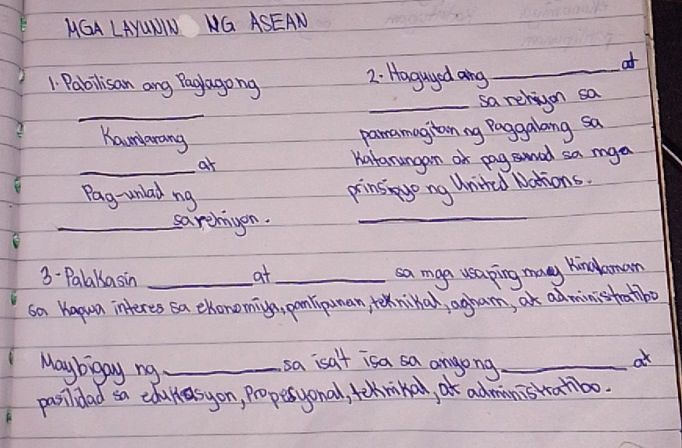 MGA LAYUNIN NG ASEAN
1. Pabilisan ang Paglagong
__________
Kaunlarang
__________ at
Pag-unlad ng
__________ sa rehiyon.
2. Haguyod ang __________ at
__________ sa rehiyon sa
pamamagitan ng Paggalang sa
Katarungan at pag sunod sa mga
prinsipyo ng United Nations.
__________
3- Palakasin __________ at __________ sa mga usaping may kinalaman
sa kapwa interes sa ekonomiya, panlipunan, teknikal, agham, at administratibo
Maybigay ng __________ sa isa't isa sa anyong __________ at
pasilidad sa edukasyon, Propesyonal, teknikal, at administratibo.